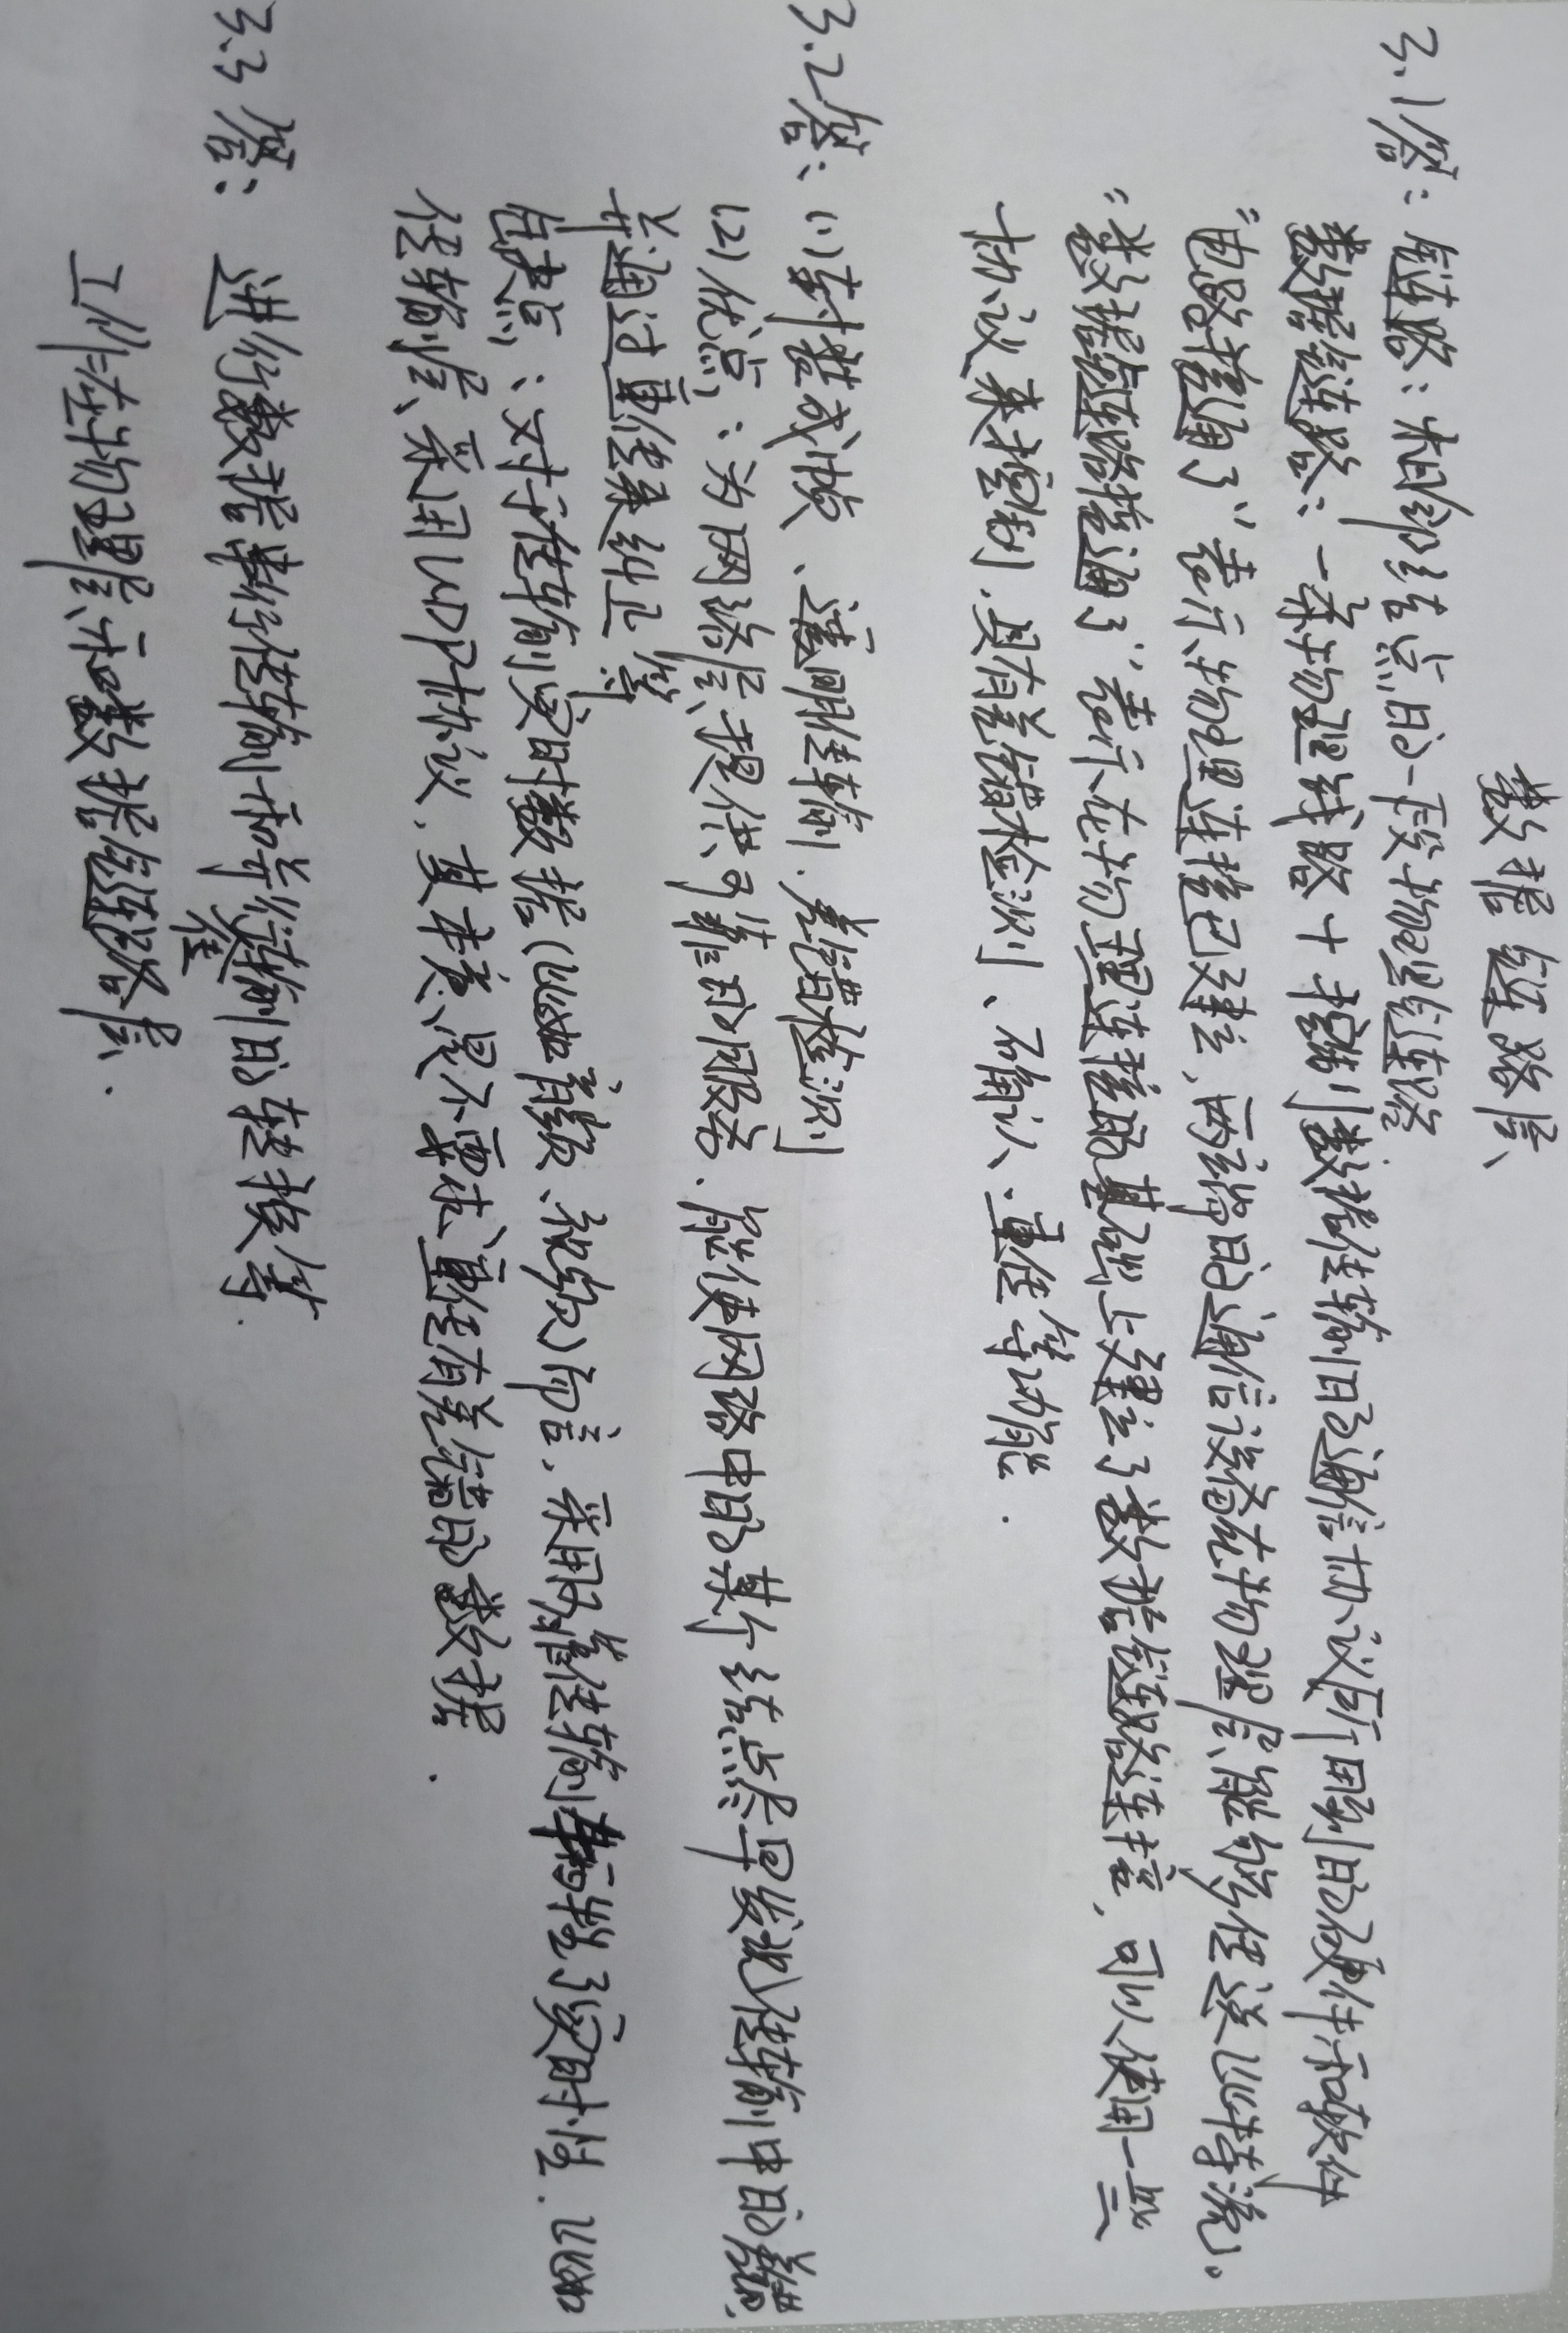 数据链路层
3.1答：链路：相邻结点的一段物理链路.
数据链路：一条物理线路+控制数据传输的通信协议所用到的硬件和软件
“电路接通了”表示物理连接已建立,两端的通信设备在物理层能够传送比特流。
“数据链路接通了”表示在物理连接的基础上建立了数据链路连接,可以使用一些
协议来控制,具有差错检测、确认、重传等功能.
3.2答：(1)封装成帧、透明传输、差错检测
(2)优点：为网络层提供可靠的服务.能使网络中的某个结点尽早发现传输中的差错,
并通过重传来纠正等
缺点：对于传输实时数据(比如音频、视频)而言,采用可靠传输牺牲了实时性.比如
传输层采用UDP协议,其本意是不要求重传有差错的数据.
3.3答：进行数据串行传输和并行传输的转换等.
工作在物理层和数据链路层.